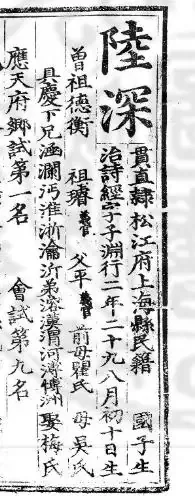 陸深
貫直隸松江府上海縣民籍　國子生
治詩經字子淵行二年二十九八月初十日生
曾祖德衡　祖璿義官　父平義官　前母瞿氏　母吳氏
具慶下兄涵瀾沔淮浙瀹沂弟溶漢渭河溥博洲　娶梅氏
應天府鄉試第一名　會試第九名